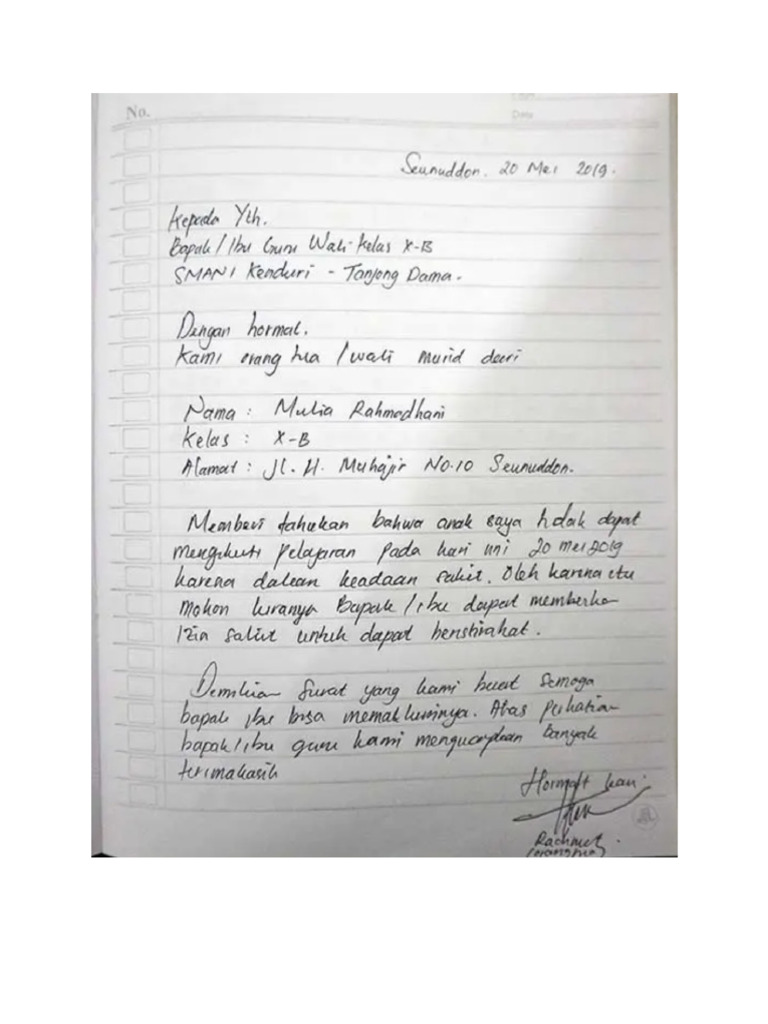 No.
Date
Seunuddon. 20 Mei 2019.
Kepada Yth.
Bapak/Ibu Guru Wali-Kelas X-B
SMAN 1 Kenduri - Tanjong Dama.
Dengan hormat.
Kami orang tua /wali murid dari
Nama : Mulia Rahmadhani
Kelas : X-B
Alamat : Jl. H. Muhajir No.10 Seunuddon.
Memberi tahukan bahwa anak saya tidak dapat
mengikuti pelajaran pada hari ini 20 mei 2019
karena dalam keadaan sakit. Oleh karena itu
mohon kiranya Bapak/ibu dapat memberika
izin sakit untuk dapat beristirahat.
Demikian surat yang kami buat semoga
bapak ibu bisa memakluminya. Atas perhatian
bapak/ibu guru kami mengucapkan banyak
terimakasih
Hormat kami
Rachmat
(orangtua)